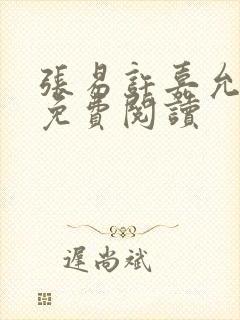 張易許嘉允
免費閱讀
遲尚斌